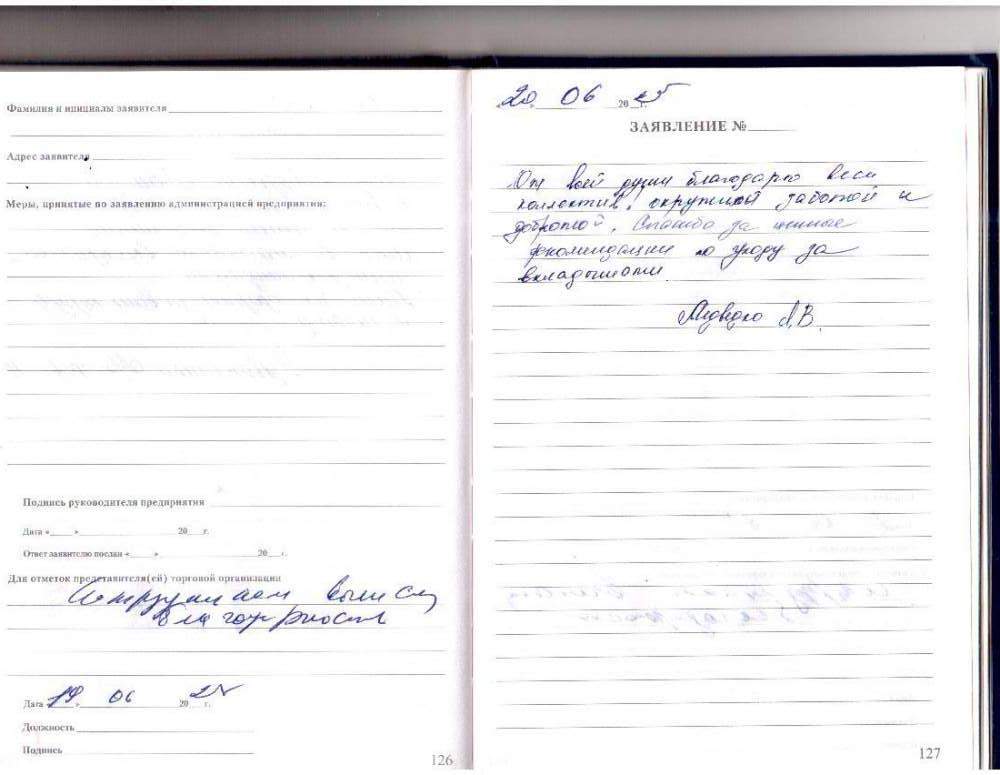 Фамилия и инициалы заявителя
Адрес заявителя
Меры, принятые по заявлению администрацией предприятия:
Подпись руководителя предприятия
Дата «    »    20    г.
Ответ заявителю послан «    »    20    г.
Для отметок представителя(ей) торговой организации
Сотрудникам вынести
благодарность
Дата «19» 06 2025 г.
Должность
Подпись
126
20 06 2025 г.
ЗАЯВЛЕНИЕ №
От всей души благодарю весь
коллектив, окруживший заботой и
добротой. Спасибо за ценные
рекомендации по уходу за
вкладышами.
А.В.
127